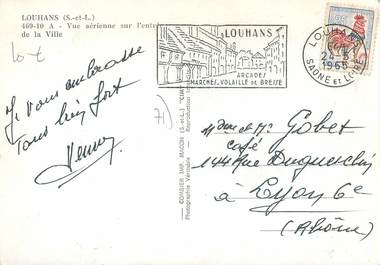 LOUHANS (S.-et-L.)
469-10 A - Vue aérienne sur l'entrée
de la Ville
10 €
Je vous embrasse
Tous bien fort
71
COMBIER IMP. MACON (S.-et-L.) "CIM"
Photographie Véritable - Reproduction
LOUHANS
ARCADES
MARCHÉS, VOLAILLE DE BRESSE
LOUHANS
24-8
1965
SAONE ET LOIRE
Mme et Mr Gobet
café
144 Rue Duguesclin
à Lyon 6e
(Rhône)